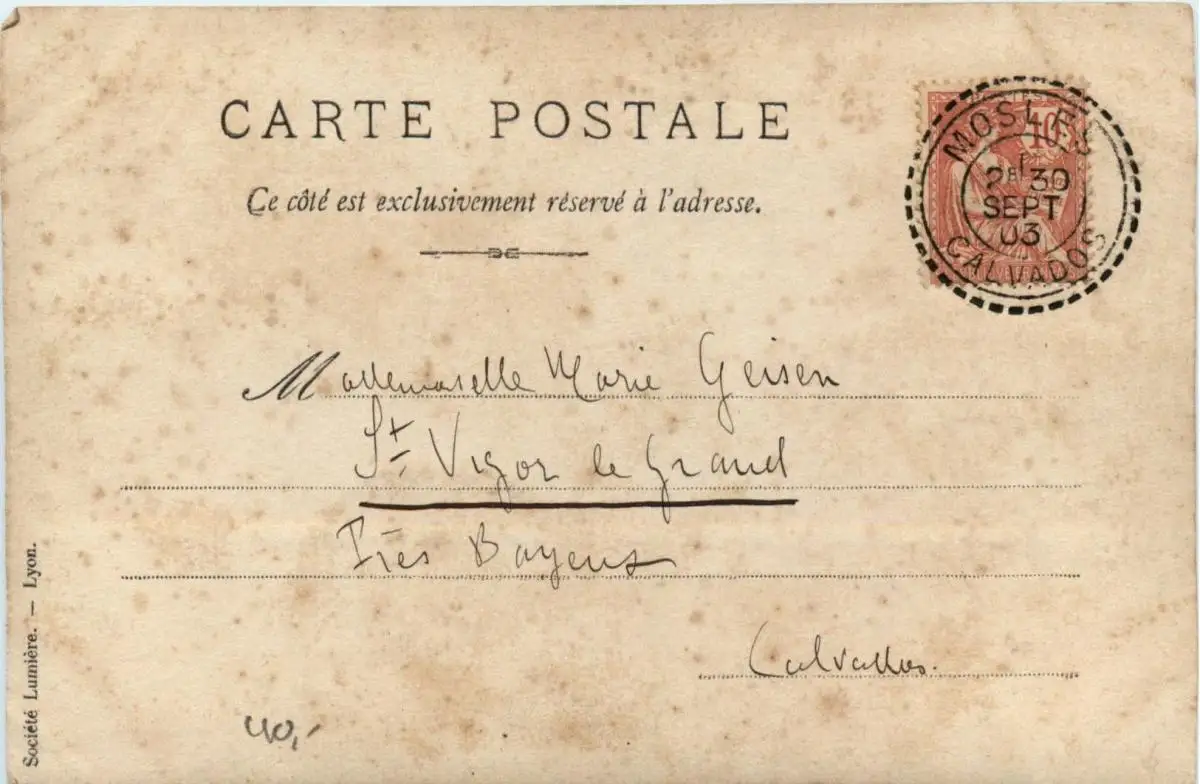 CARTE POSTALE
Ce côté est exclusivement réservé à l'adresse.
10
MOSLES
2E 30
SEPT
03
CALVADOS
Mademoiselle Marie Geisen
St Vigor le Grand
Près Bayeux
Calvados.
40,-
Société Lumière. — Lyon.